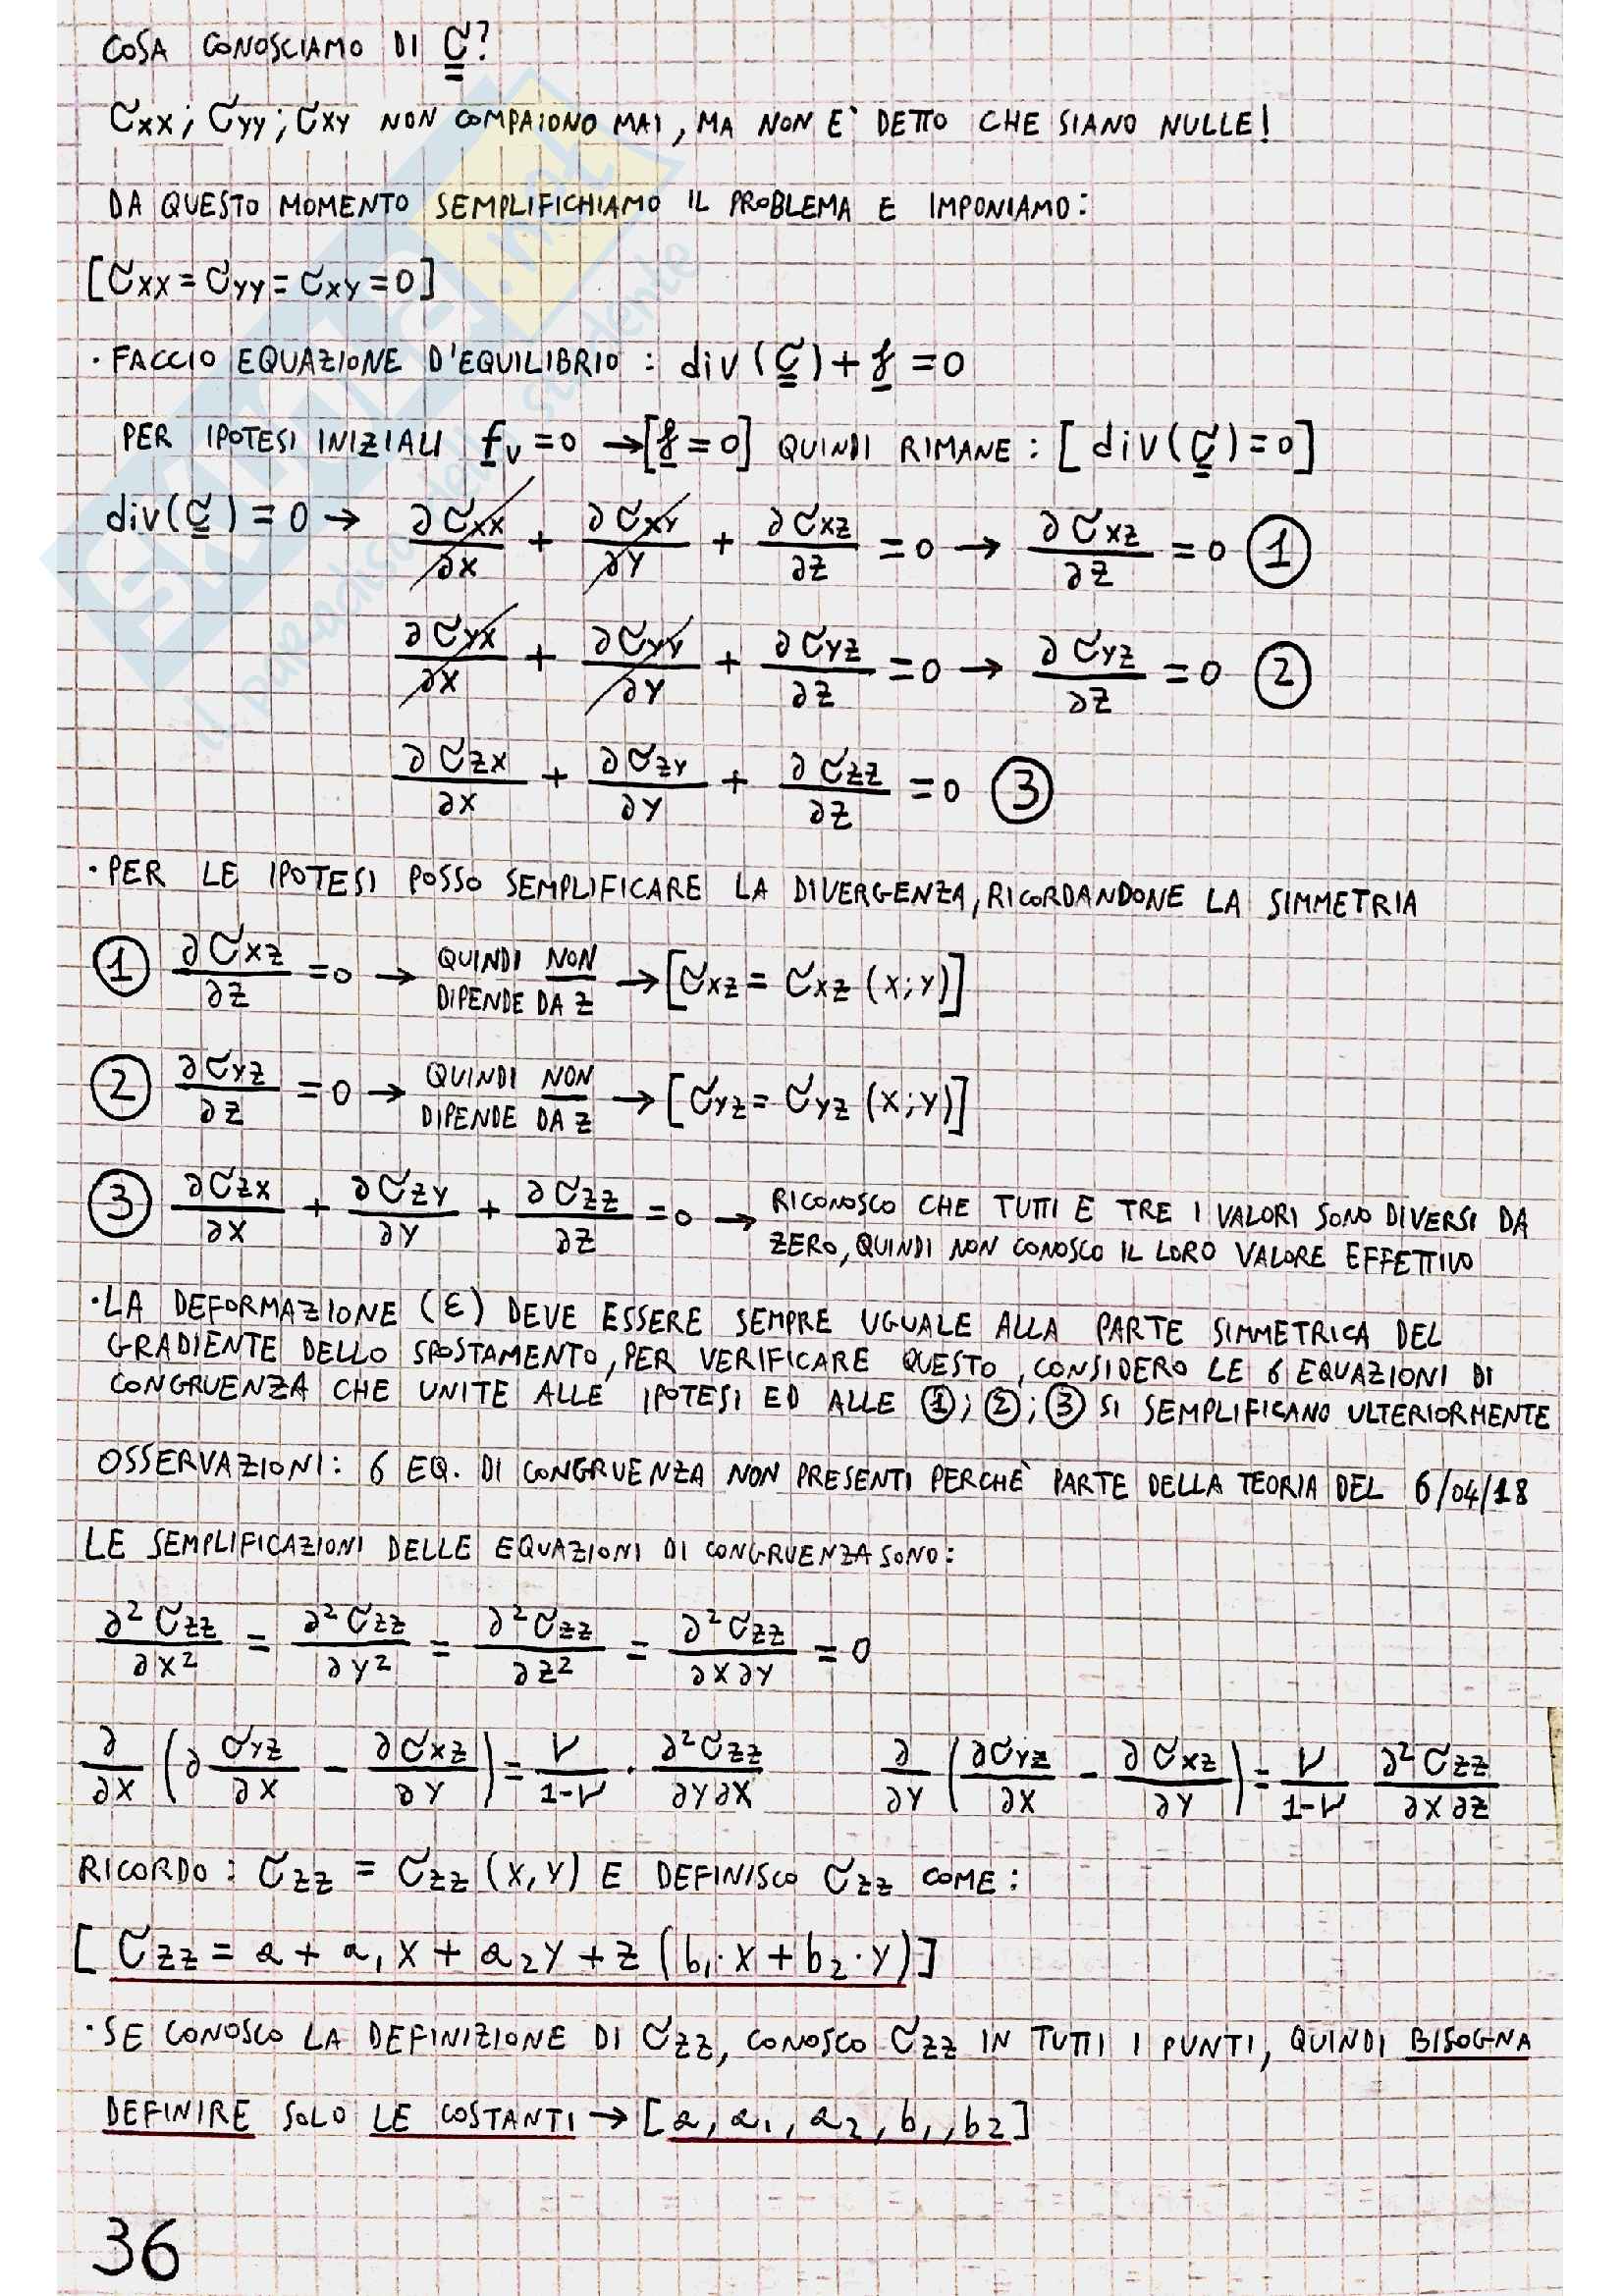 COSA CONOSCIAMO DI σ̳?
σxx; σyy; σxy NON COMPAIONO MAI, MA NON E` DETTO CHE SIANO NULLE!
DA QUESTO MOMENTO SEMPLIFICHIAMO IL PROBLEMA E IMPONIAMO:
[σxx = σyy = σxy = 0]
· FACCIO EQUAZIONE D'EQUILIBRIO: div(σ̳) + f̲ = 0
PER IPOTESI INIZIALI f̲v = 0 → [f̲ = 0] QUINDI RIMANE: [div(σ̳) = 0]
div(σ̳) = 0 → ∂σxx/∂x + ∂σxy/∂y + ∂σxz/∂z = 0 → ∂σxz/∂z = 0 ①
∂σyx/∂x + ∂σyy/∂y + ∂σyz/∂z = 0 → ∂σyz/∂z = 0 ②
∂σzx/∂x + ∂σzy/∂y + ∂σzz/∂z = 0 ③
· PER LE IPOTESI POSSO SEMPLIFICARE LA DIVERGENZA, RICORDANDONE LA SIMMETRIA
① ∂σxz/∂z = 0 → QUINDI NON DIPENDE DA Z → [σxz = σxz (x; y)]
② ∂σyz/∂z = 0 → QUINDI NON DIPENDE DA Z → [σyz = σyz (x; y)]
③ ∂σzx/∂x + ∂σzy/∂y + ∂σzz/∂z = 0 → RICONOSCO CHE TUTTI E TRE I VALORI SONO DIVERSI DA
ZERO, QUINDI NON CONOSCO IL LORO VALORE EFFETTIVO
· LA DEFORMAZIONE (ε) DEVE ESSERE SEMPRE UGUALE ALLA PARTE SIMMETRICA DEL
GRADIENTE DELLO SPOSTAMENTO, PER VERIFICARE QUESTO, CONSIDERO LE 6 EQUAZIONI DI
CONGRUENZA CHE UNITE ALLE IPOTESI ED ALLE ①; ②; ③ SI SEMPLIFICANO ULTERIORMENTE
OSSERVAZIONI: 6 EQ. DI CONGRUENZA NON PRESENTI PERCHE` PARTE DELLA TEORIA DEL 6/04/18
LE SEMPLIFICAZIONI DELLE EQUAZIONI DI CONGRUENZA SONO:
∂²σzz/∂x² = ∂²σzz/∂y² = ∂²σzz/∂z² = ∂²σzz/∂x∂y = 0
∂/∂x (∂σyz/∂x - ∂σxz/∂y) = ν/1-ν · ∂²σzz/∂y∂x ∂/∂y (∂σyz/∂x - ∂σxz/∂y) = ν/1-ν ∂²σzz/∂x∂z
RICORDO: σzz = σzz (x, y) E DEFINISCO σzz COME:
[σzz = a + a₁x + a₂y + z (b₁·x + b₂·y)]
· SE CONOSCO LA DEFINIZIONE DI σzz, CONOSCO σzz IN TUTTI I PUNTI, QUINDI BISOGNA
DEFINIRE SOLO LE COSTANTI → [a, a₁, a₂, b₁, b₂]
36